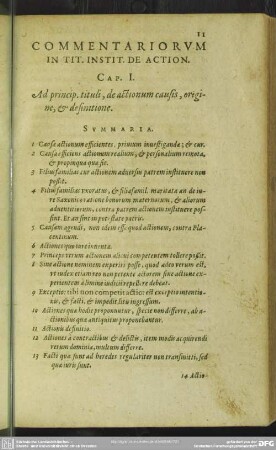 11
COMMENTARIORVM
IN TIT. INSTIT. DE ACTION.
CAP. I.
Ad princip. tituli, de actionum causis, origi-
ne, & definitione.
SVMMARIA.
1 Causæ actionum efficientes, primùm inuestigandæ; & cur.
2 Causa efficiens actionum realium, & personalium remota,
& propinqua quæ sit.
3 Filiusfamilias cur actionem aduersus patrem instituere non
possit.
4 Filiusfamilias vxoratus, & filiafamil. maritata an de iu-
re Saxonico ratione bonorum maternorum, & aliorum
aduentitiorum, contra patrem actionem instituere pos-
sint. Et an sint in potestate patris.
5 Causam agendi, non idem esse quod actionem, contra Pla-
centinum.
6 Actiones quo iure inuentæ.
7 Princeps verum actionem alicui competentem tollere possit.
8 Sine actione neminem experiri posse, quod adeò verum est,
vt iudex etiam reo non petente actorem sine actione expe-
rientem à limine iudicii repellere debeat.
9 Exceptio: tibi non competit actio: est exceptio intentio-
nis, & facti, & impedit litis ingressum.
10 Actiones quæ hodie proponuntur, specie non differre, ab a-
ctionibus quæ antiquitus proponebantur.
11 Actionis definitio.
12 Actiones à contractibus & delictis, item modis acquirendi
rerum dominia, multum differre.
13 Facti quæ sunt ad heredes regulariter non transmitti, sed
quæ iuris sunt.
14 Actio-